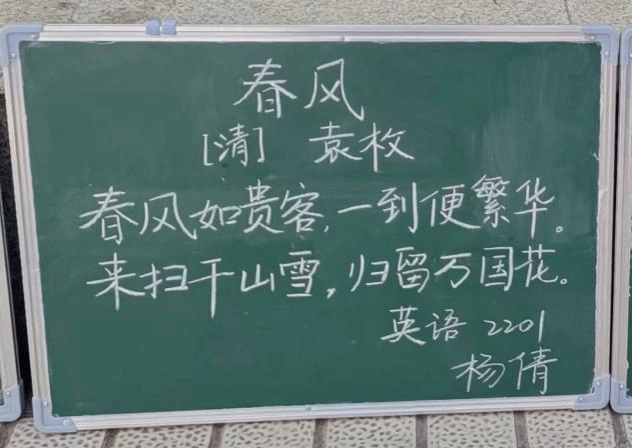 春风
[清] 袁枚
春风如贵客,一到便繁华。
来扫千山雪,归留万国花。
英语 2201
杨倩